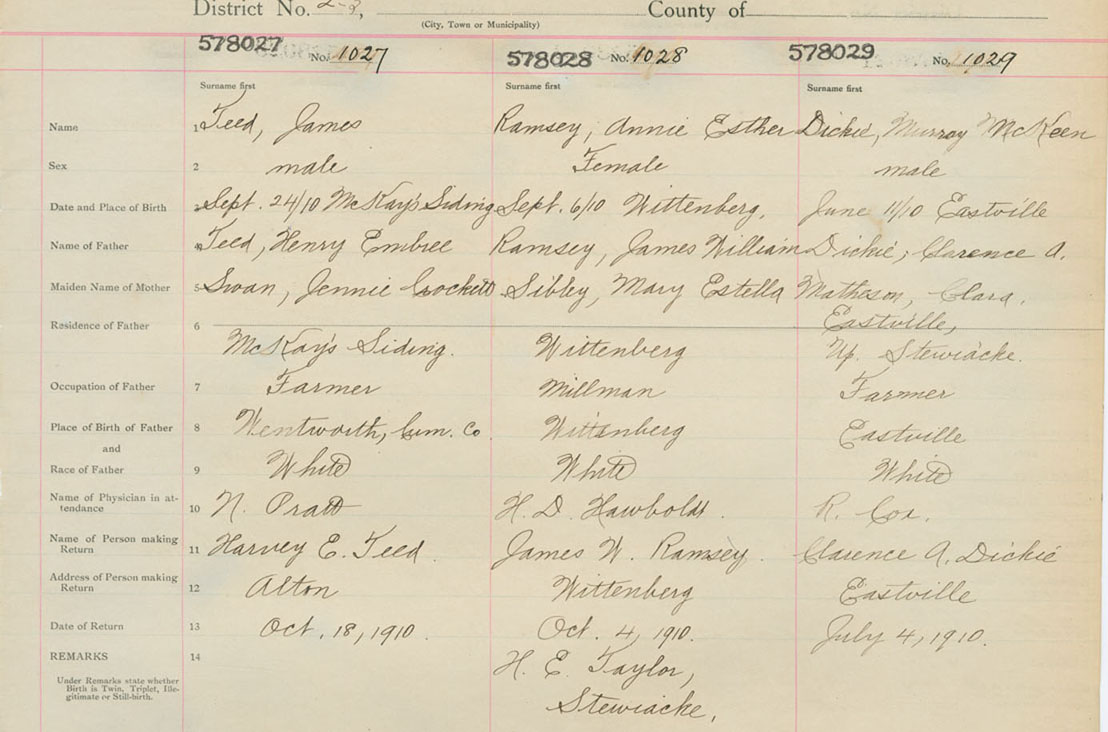 District No. 2-8, County of
(City, Town or Municipality)
578027 No. 1027 578028 No. 1028 578029 No. 1029
Surname first Surname first Surname first
Name 1 Teed, James Ramsey, Annie Esther Dickie, Murray McKeen
Sex 2 male Female male
Date and Place of Birth 3 Sept. 24/10 McKay's Siding Sept. 6/10 Wittenberg. June 11/10 Eastville
Name of Father 4 Teed, Henry Embree Ramsey, James William Dickie, Clarence A.
Maiden Name of Mother 5 Swan, Jennie Crockett Sibley, Mary Estella Matheson, Clara.
Residence of Father 6 Eastville,
McKay's Siding. Wittenberg Up. Stewiacke.
Occupation of Father 7 Farmer Millman Farmer
Place of Birth of Father 8 Wentworth, Cum. Co Wittenberg Eastville
and
Race of Father 9 White White White
Name of Physician in at-
tendance 10 N. Pratt H. D. Hawboldt. R. Cox.
Name of Person making
Return 11 Harvey E. Teed. James W. Ramsey. Clarence A. Dickie
Address of Person making
Return 12 Alton Wittenberg Eastville
Date of Return 13 Oct. 18, 1910. Oct. 4, 1910. July 4, 1910.
REMARKS 14 H. E. Taylor,
Under Remarks state whether
Birth is Twin, Triplet, Ille-
gitimate or Still-birth.
Stewiacke,